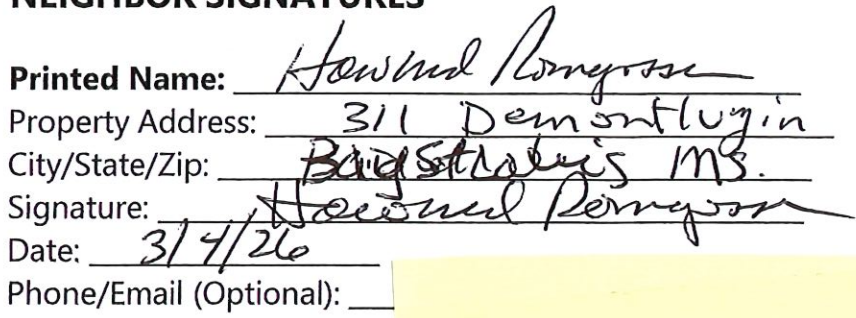 NEIGHBOR SIGNATURES
Printed Name: Howard
Property Address: 311 Demontluzin
City/State/Zip: MS.
Signature: Howard
Date: 3/4/26
Phone/Email (Optional):